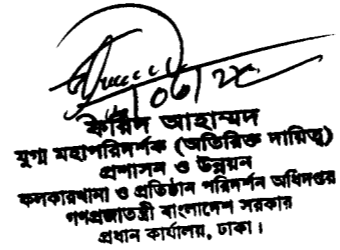 ফরিদ আহাম্মদ
যুগ্ম মহাপরিদর্শক (অতিরিক্ত দায়িত্ব)
প্রশাসন ও উন্নয়ন
কলকারখানা ও প্রতিষ্ঠান পরিদর্শন অধিদপ্তর
গণপ্রজাতন্ত্রী বাংলাদেশ সরকার
প্রধান কার্যালয়, ঢাকা।